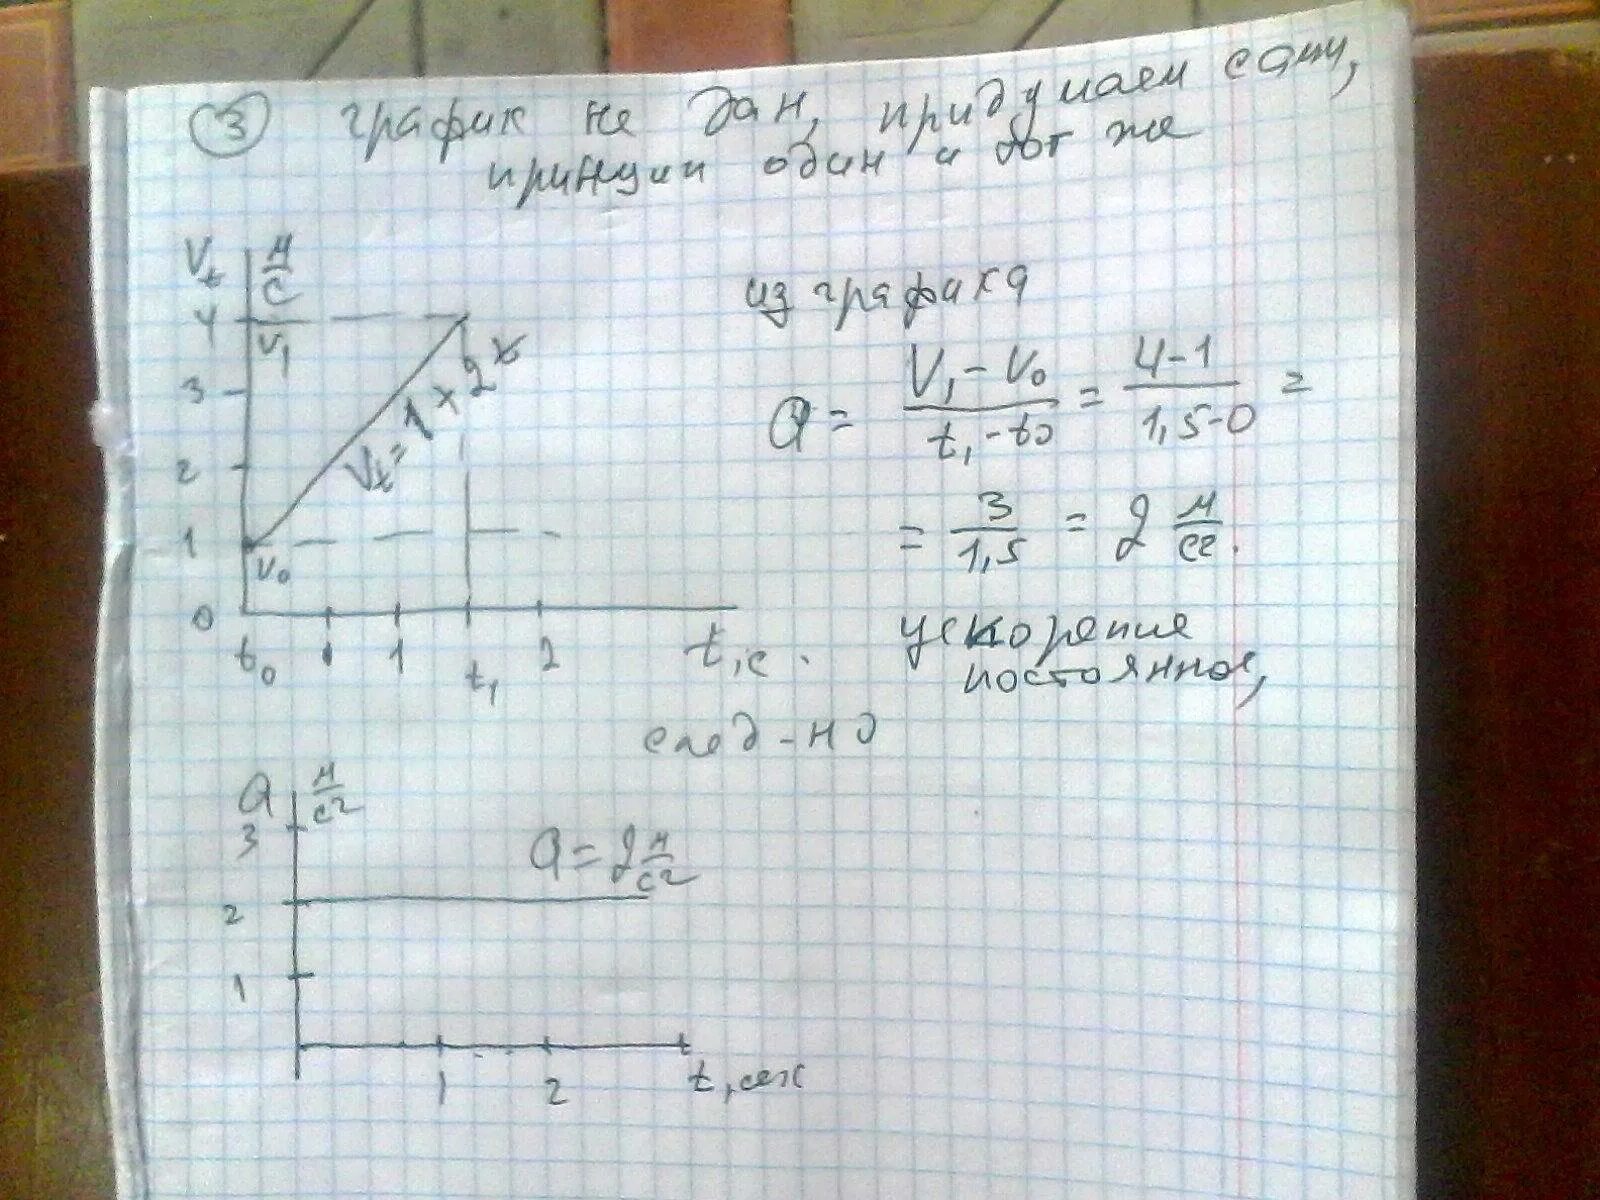 ③ график не дан, придумаем сами,
принцип один и тот же
Vt м/с
4 V₁
3
2
1 V₀
0
Vt = 1 + 2t
t₀ 1 t₁ 2 t, с.
из графика
a = (V₁ - V₀)/(t₁ - t₀) = (4-1)/(1,5-0) =
= 3/1,5 = 2 м/с².
ускорение
постоянное,
след-но
a м/с²
3
2
1
a = 2 м/с²
1 2 t, сек